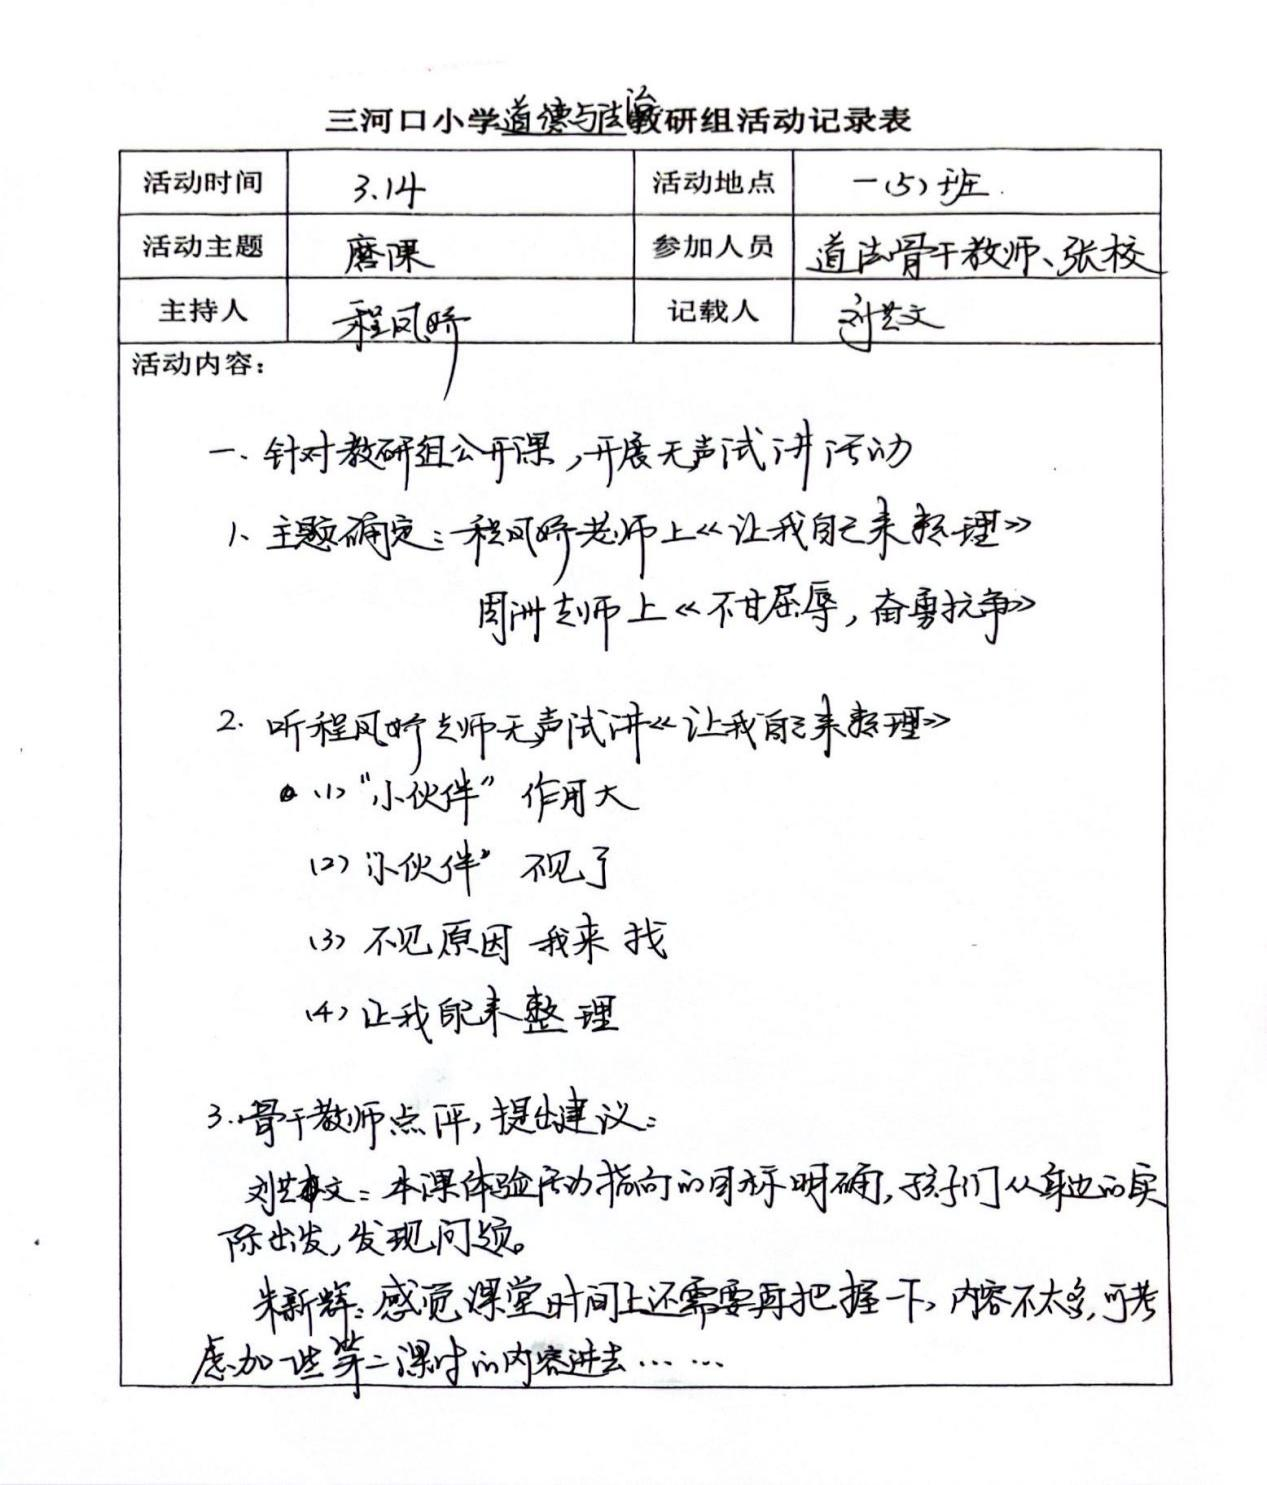 三河口小学道德与法治教研组活动记录表
活动时间 3.14 活动地点 一(5)班.
活动主题 磨课 参加人员 道法骨干教师、张校
主持人 程凤娇 记载人 刘芸文
活动内容：
一、针对教研组公开课，开展无声试讲活动
1、主题确定：程凤娇老师上《让我自己来整理》
周洲老师上《不甘屈辱，奋勇抗争》
2. 听程凤娇老师无声试讲《让我自己来整理》
(1)“小伙伴”作用大
(2)“小伙伴”不见了
(3) 不见原因 我来找
(4) 让我自己来整理
3. 骨干教师点评，提出建议：
刘芸文：本课体验活动指向的目标明确，孩子们从身边的实
际出发，发现问题。
朱新辉：感觉课堂时间上还需要再把握一下，内容不太多，可考
虑加一些第二课时的内容进去……